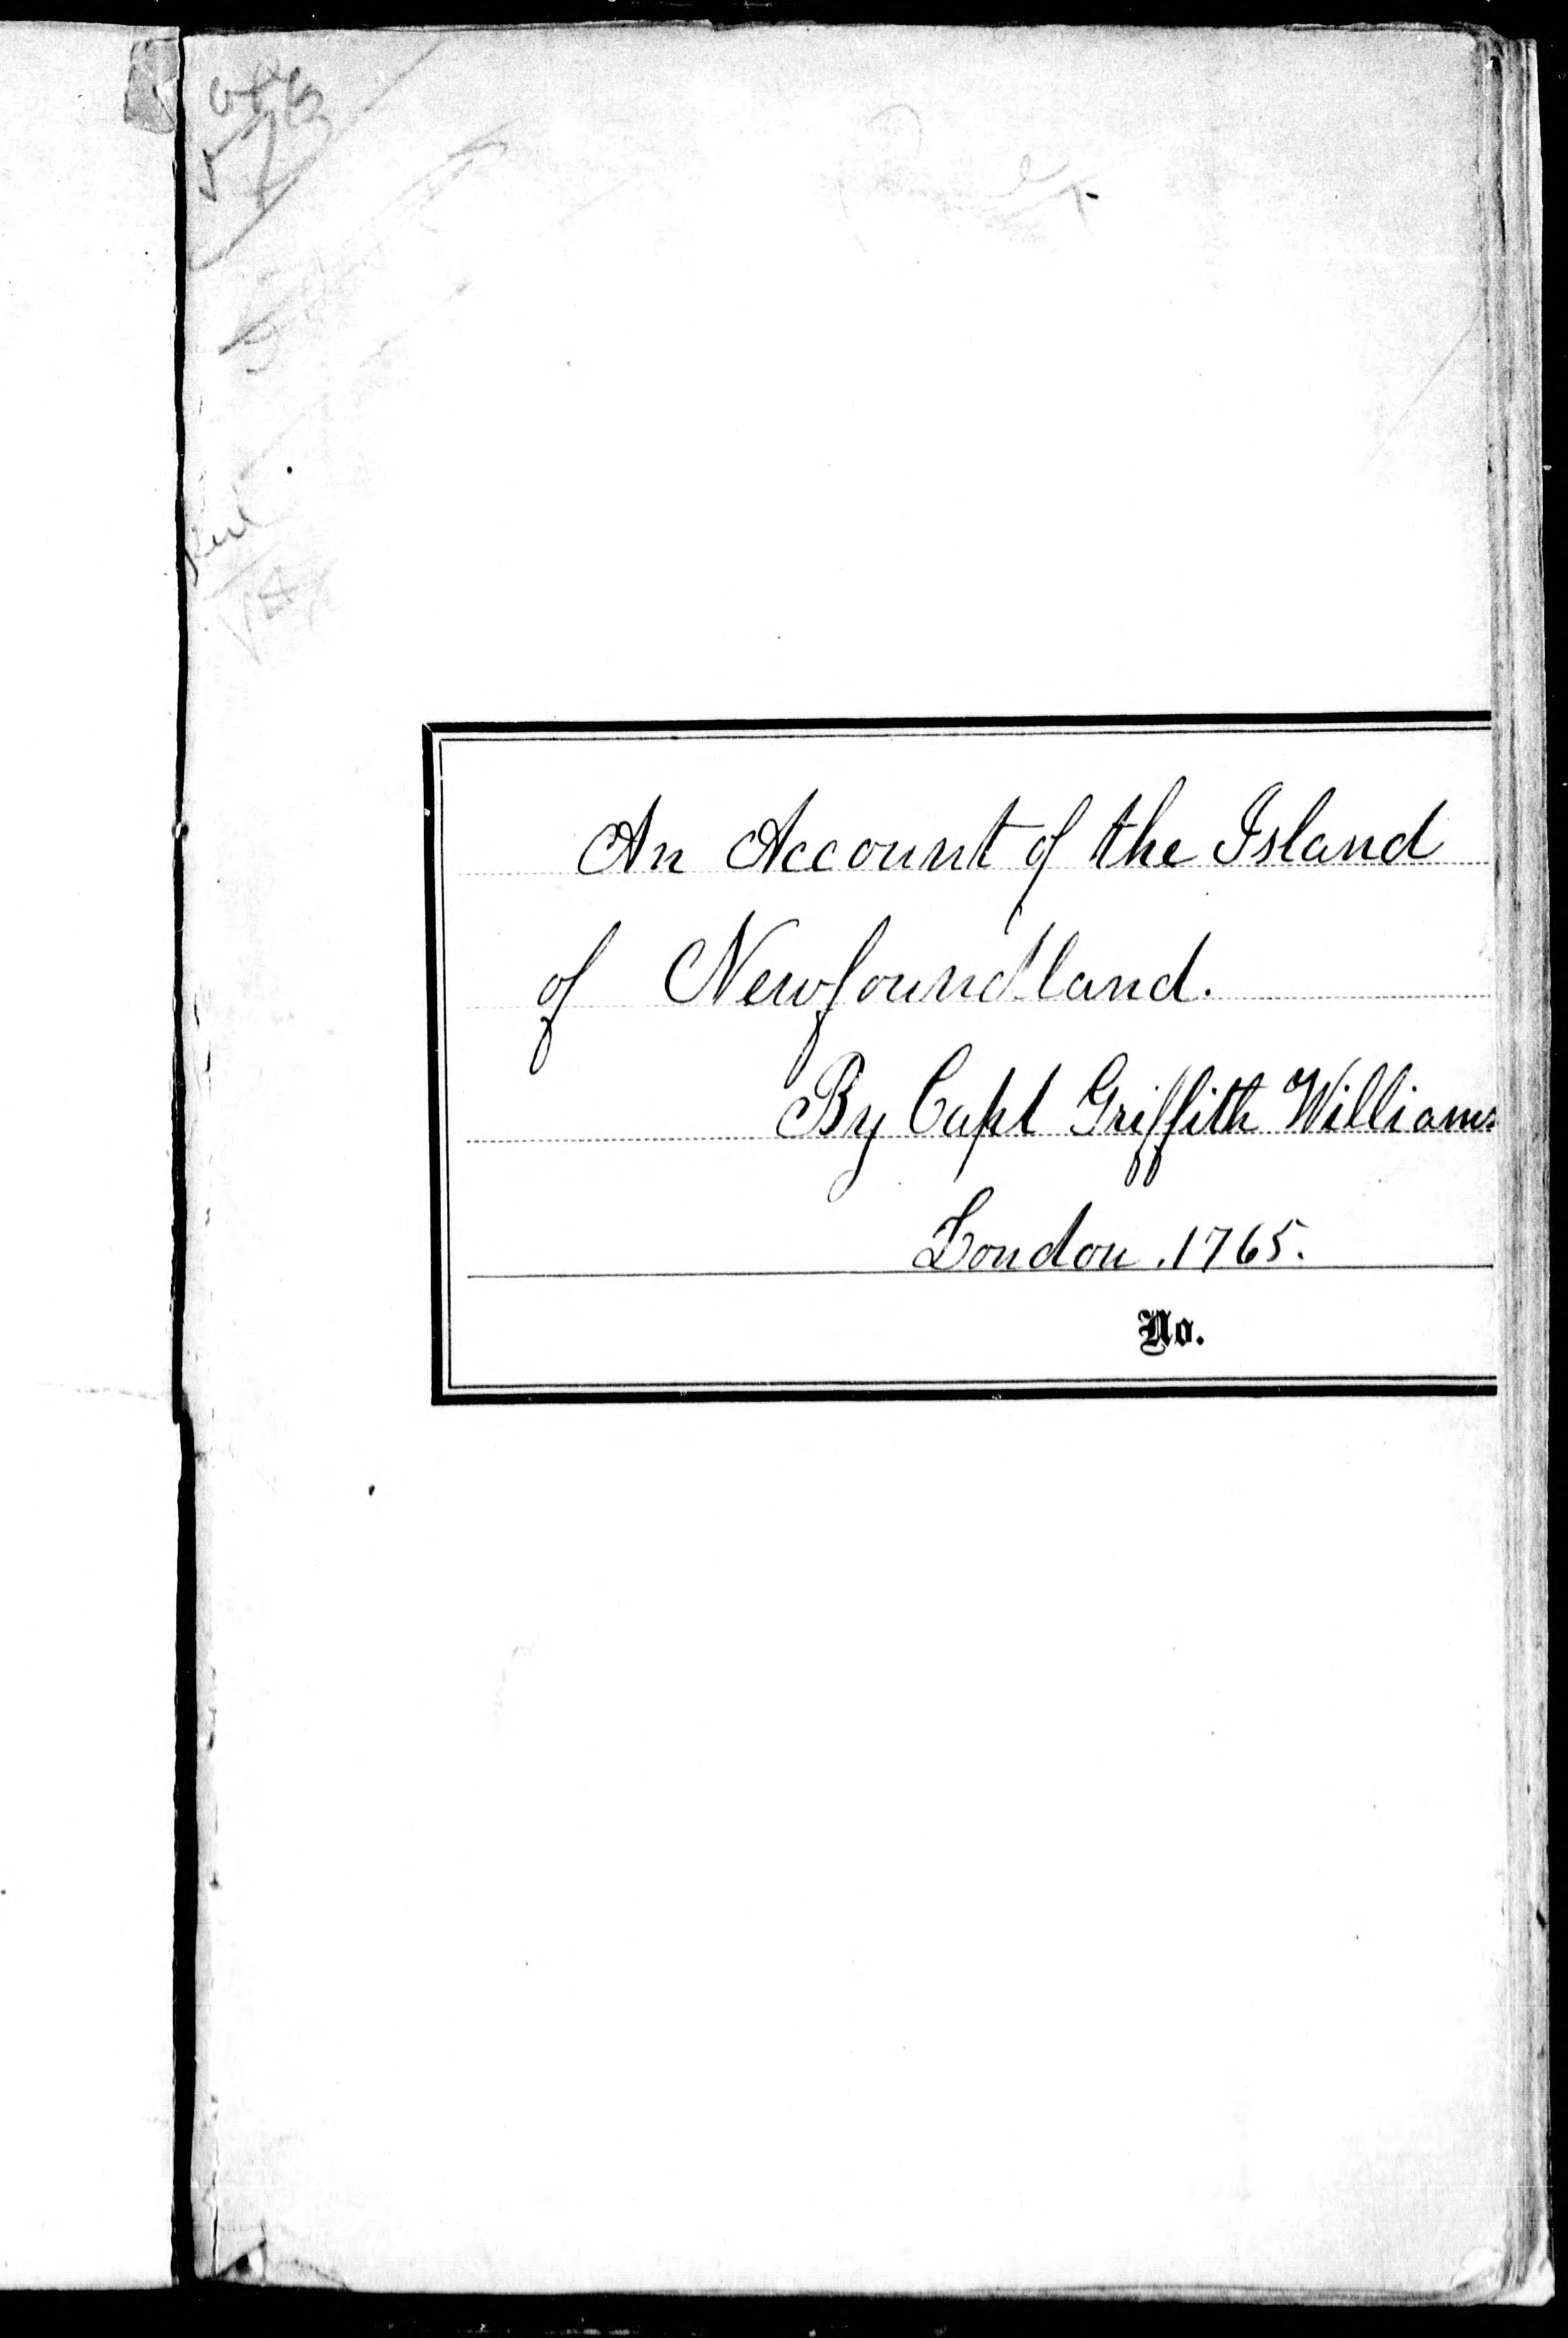 An Account of the Island
of Newfoundland.
By Capt Griffith Williams
London. 1765.
No.